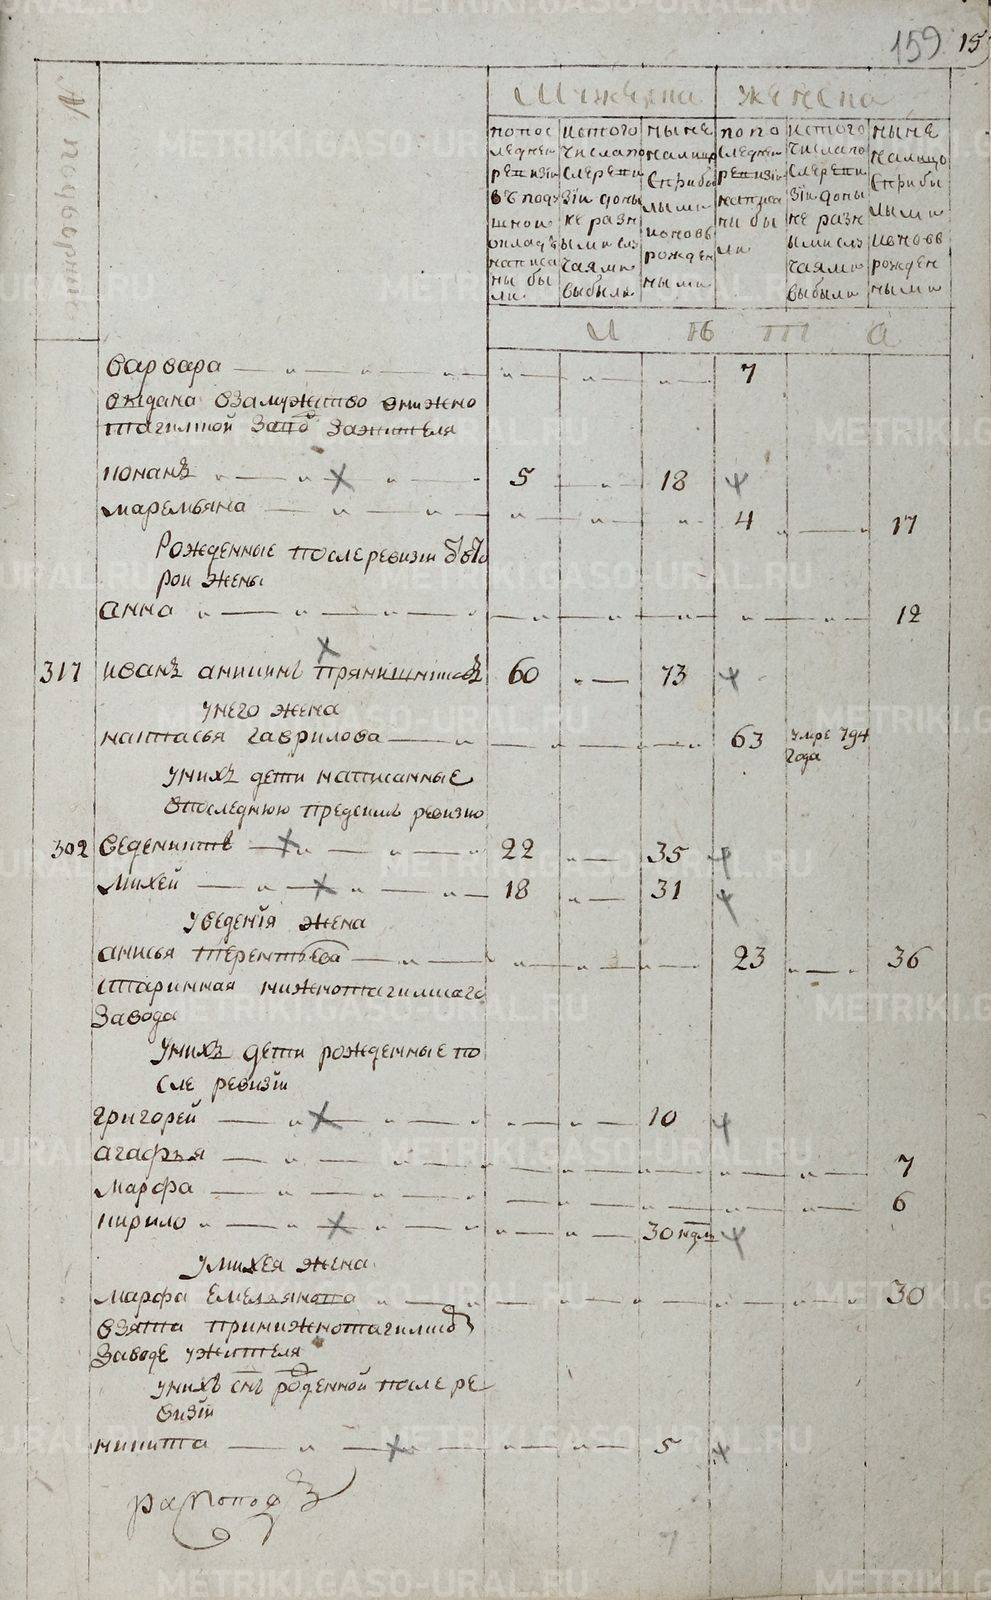 159 15
№ подворно
Мужеска женска
по последней ревизии въ подушной окладъ написаны были
ис того числа после ревизіи до ныне разными случаями выбыли
ныне налицо с прибылыми и вновь рожденными
по последней ревизіи написаны были
ис того числа после ревизіи до ныне разными случаями выбыли
ныне налицо с прибылыми и вновь рожденными
Л Ѣ Т А
варвара 7
отдана взамужство внижно
тагилской завод зажителя
конанъ 5 18
маремьяна 4 17
Рожденные после ревизіи отвто
рои жены
анна 12
317 иванъ аникинъ прянишниковъ 60 73
унего жена
настасья гаврилова 63 умре 794 года
унихъ дети написанные
впоследнюю пределъ ревизию
302 веденихтъ 22 35
михей 18 31
уведенія жена
анисья терентьева 23 36
старинная нижнотагилскаго
завода
унихъ дети рожденные по
сле ревизіи
григорей 10
агафья 7
марфа 6
кирило 30 недль
умихея жена
марфа емельянова 30
взята принижнотагилскомъ
заводе ужителя
унихъ снъ рожденной после ре
визіи
никита 5